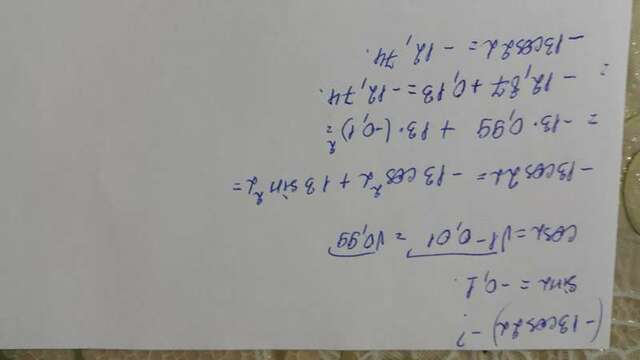 (-13cos2α) - ?
sinα = -0,1.
cosα = √1-0,01 = √0,99
-13cos2α = -13cos²α + 13sin²α =
= -13·0,99 + 13·(-0,1)² =
= -12,87 + 0,13 = -12,74.
-13cos2α = -12,74.